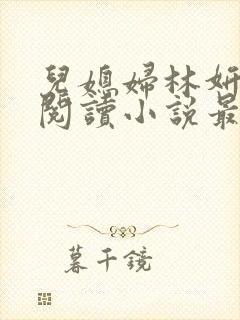 兒媳婦林妍
閱讀小說最
暮千鏡